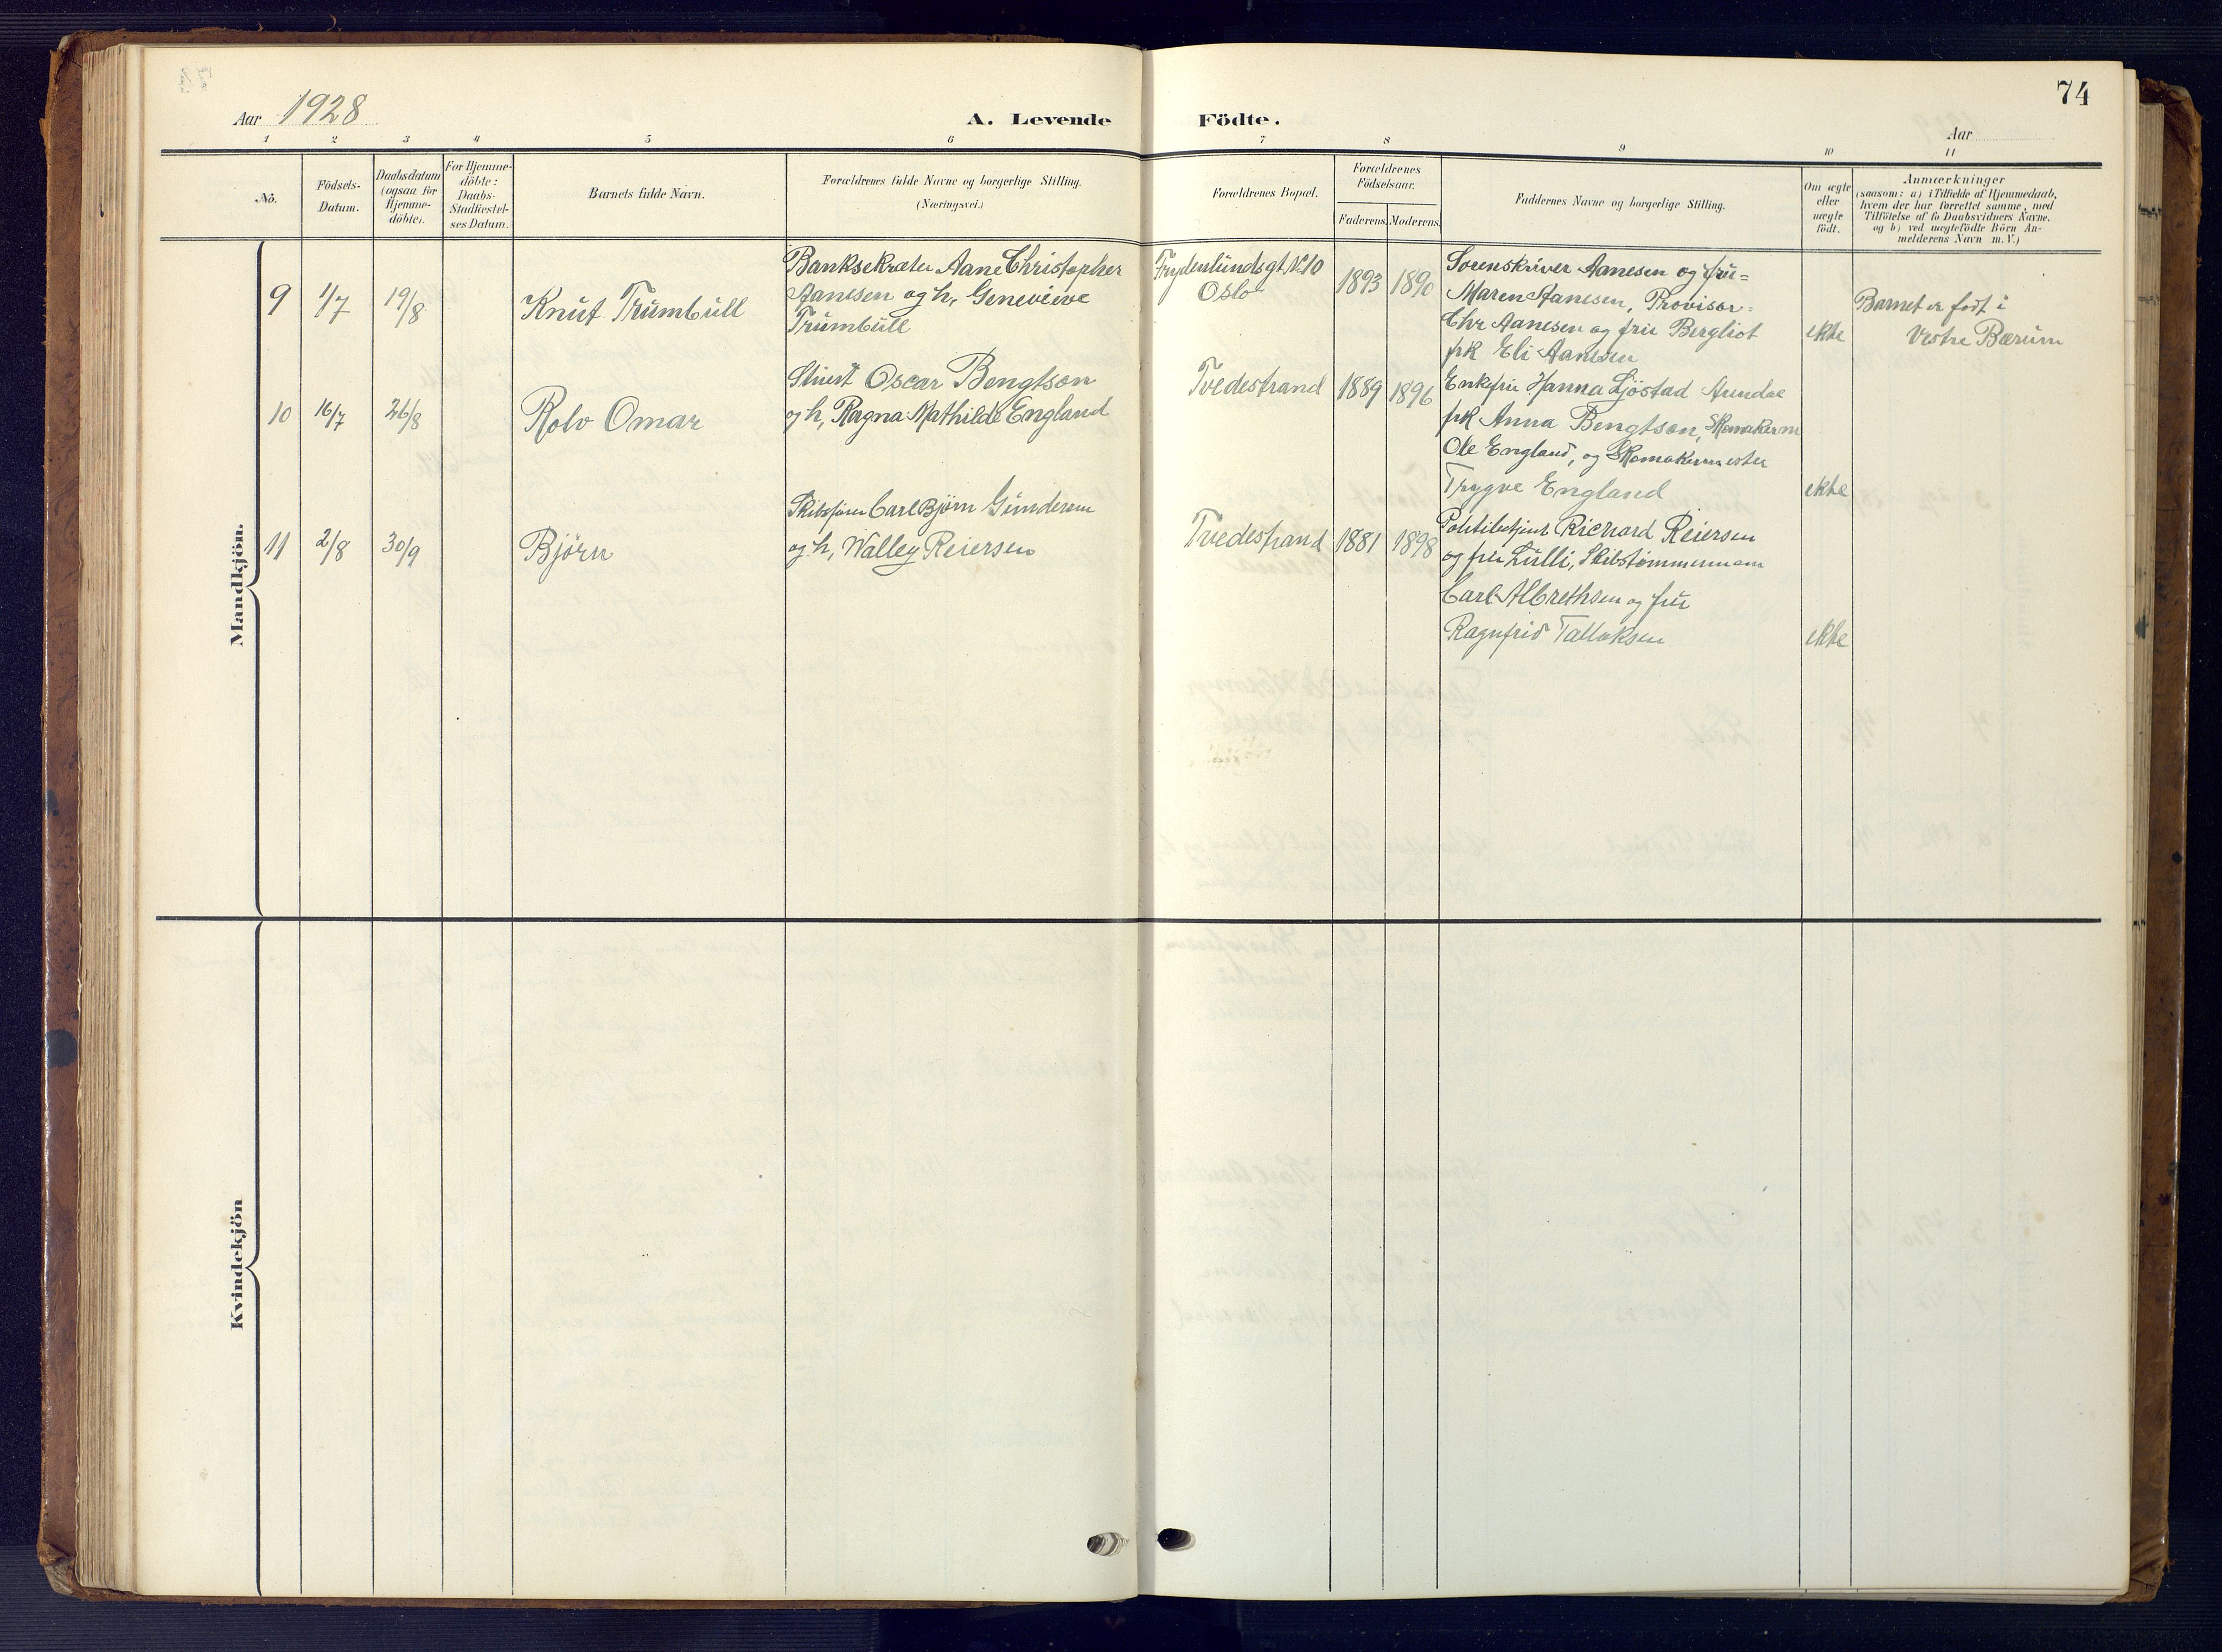 74
Aar 1928
A. Levende Födte.
Aar
1 2 3 4 5 6 7 8 9 10 11
No.
Födsels-
Datum.
Daabsdatum
(ogsaa for
Hjemme-
döbte).
For Hjemme-
döbte:
Daabs-
Stadfæstel-
ses Datum.
Barnets fulde Navn.
Forældrenes fulde Navne og borgerlige Stilling.
(Næringsvei.)
Forældrenes Bopæl.
Forældrenes
Födselsaar.
Faderens. Moderens.
Faddernes Navne og borgerlige Stilling.
Om ægte
eller
uægte
födt.
Anmærkninger
(saasom: a) i Tilfælde af Hjemmedaab,
hvem der har forrettet samme, med
Tilföielse af to Daabsvidners Navne.
og b) ved uægtefödte Börn An-
melderens Navn m. V.)
Mandkjön.
9 1/7 19/8 Knut Trumbull
Banksekretær Aane Christopher
Aanesen og h, Genevieve
Trumbull
Frydenlundsgt. No 10
Oslo
1893 1890
Sorenskriver Aanesen og fru
Maren Aanesen, Provisor
Chr Aanesen og fru Bergliot
frk Eli Aanesen
ekte
Barnet er født i
Vestre Bærum
10 16/7 26/8 Rolv Omar
Stuert Oscar Bengtson
og h, Ragna Mathilde England
Tvedestrand 1889 1896
Enkefru Hanna Ljöstad Arendal
frk Anna Bengtson, Skomakerm
Ole England, og Skomakermester
Trygve England
ekte
11 2/8 30/9 Björn
Skibsfører Carl Bjørn Gundersen
og h, Walley Reiersen
Tvedestrand 1881 1898
Politibetjent Richard Reiersen
og fru Lulli, Skibstømmermann
Carl Albrethsen og fru
Ragnfrid Tallaksen
ekte
Kvindekjön